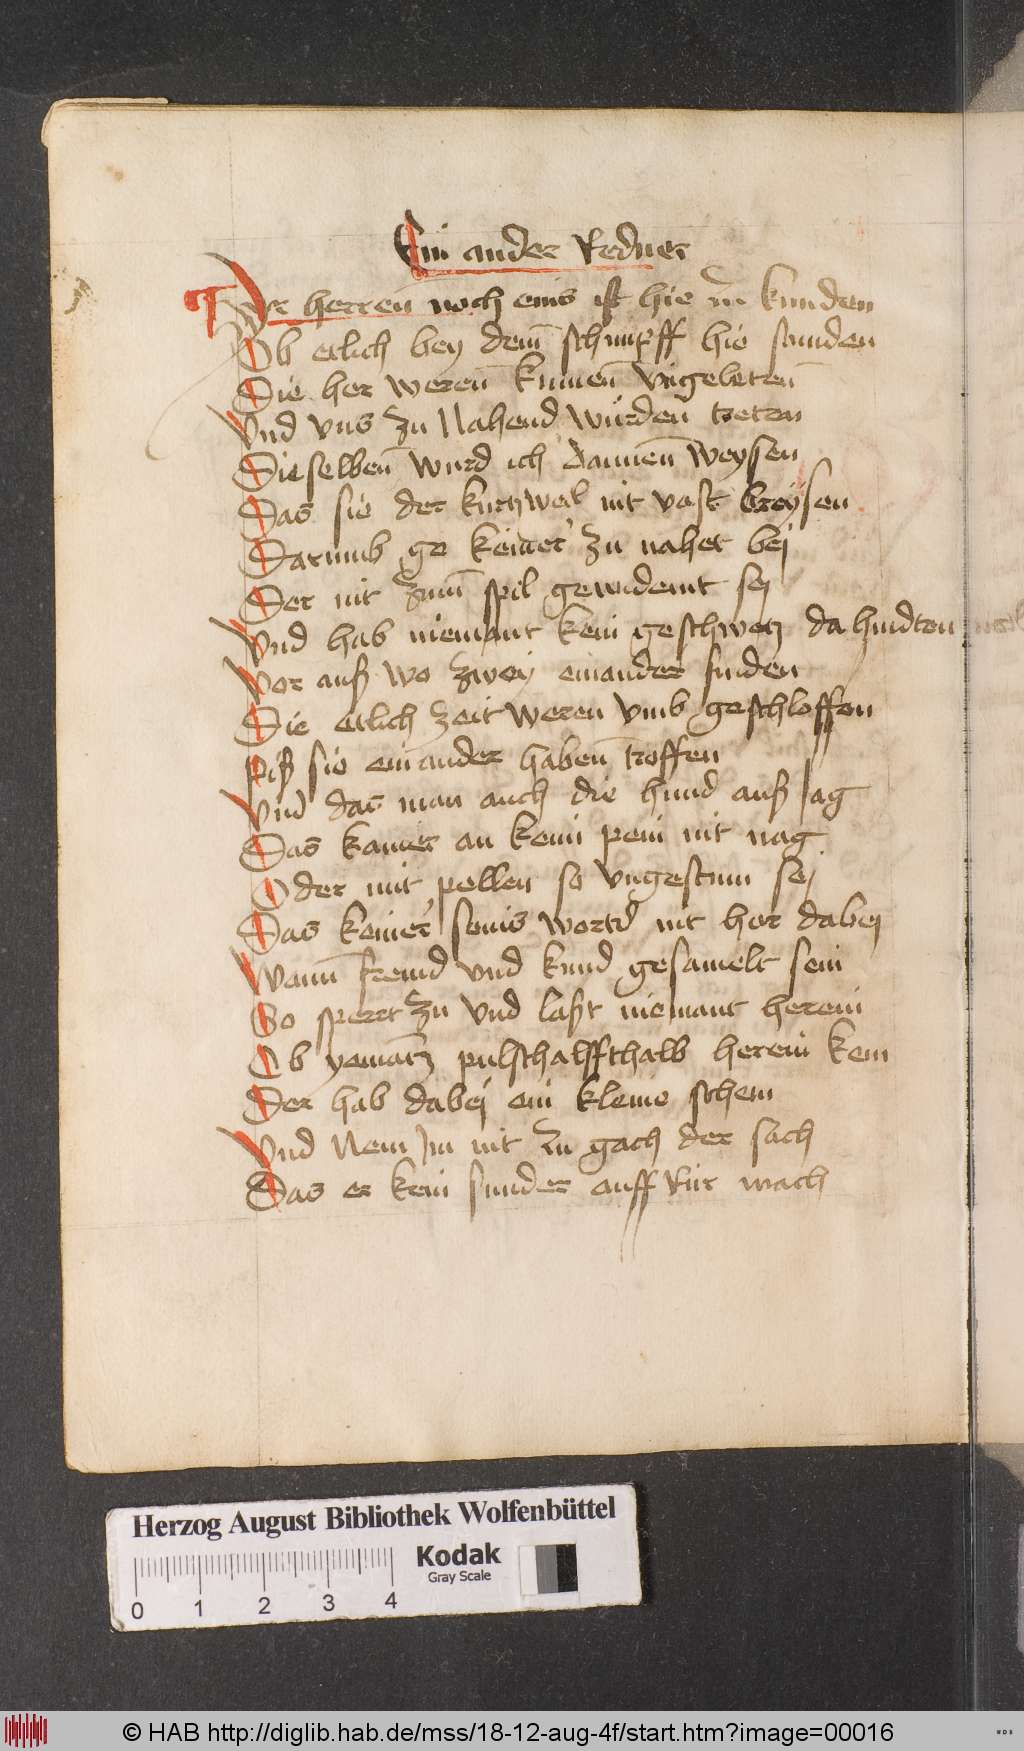 Ein ander Redner
Ir herren noch eins ist hie zu kunden
Ob etlich bey dem̄ schimpff hie stunden
Die her weren̄ kumen̄ vngebeten̄
Vnd vns zu Nahend wurden treten
Die selben̄ wurd ich dannen̄ weysen
Das sie der kurtzweil nit vast breysen
Darumb ge keiner zu nahet bej
Der nit zum̄ spil gewidemt sej
Vnd hab niemant kein geschwetz da hindten
Vor auß wo zwey einander finden
Die etlich zeit weren vmb geschloffen
Piß sie ein ander haben̄ troffen
Vnd das man auch die hund auß Jag
Das kainer an keim pein nit nag
Oder mit pellen so vngestum sej
Das keiner seins worts nit hor dabej
Wann̄ fremd vnd kund gesamelt sein
So sperrt zu vnd laßt niemant herein
Ob yemātz pulschafft halb herein kem
Der hab dabej ein kleine schem
Vnd Nem Im nit zu gach der sach
Das er kein sunder auffRur mach
Herzog August Bibliothek Wolfenbüttel
Kodak
Gray Scale
0 1 2 3 4
© HAB http://diglib.hab.de/mss/18-12-aug-4f/start.htm?image=00016